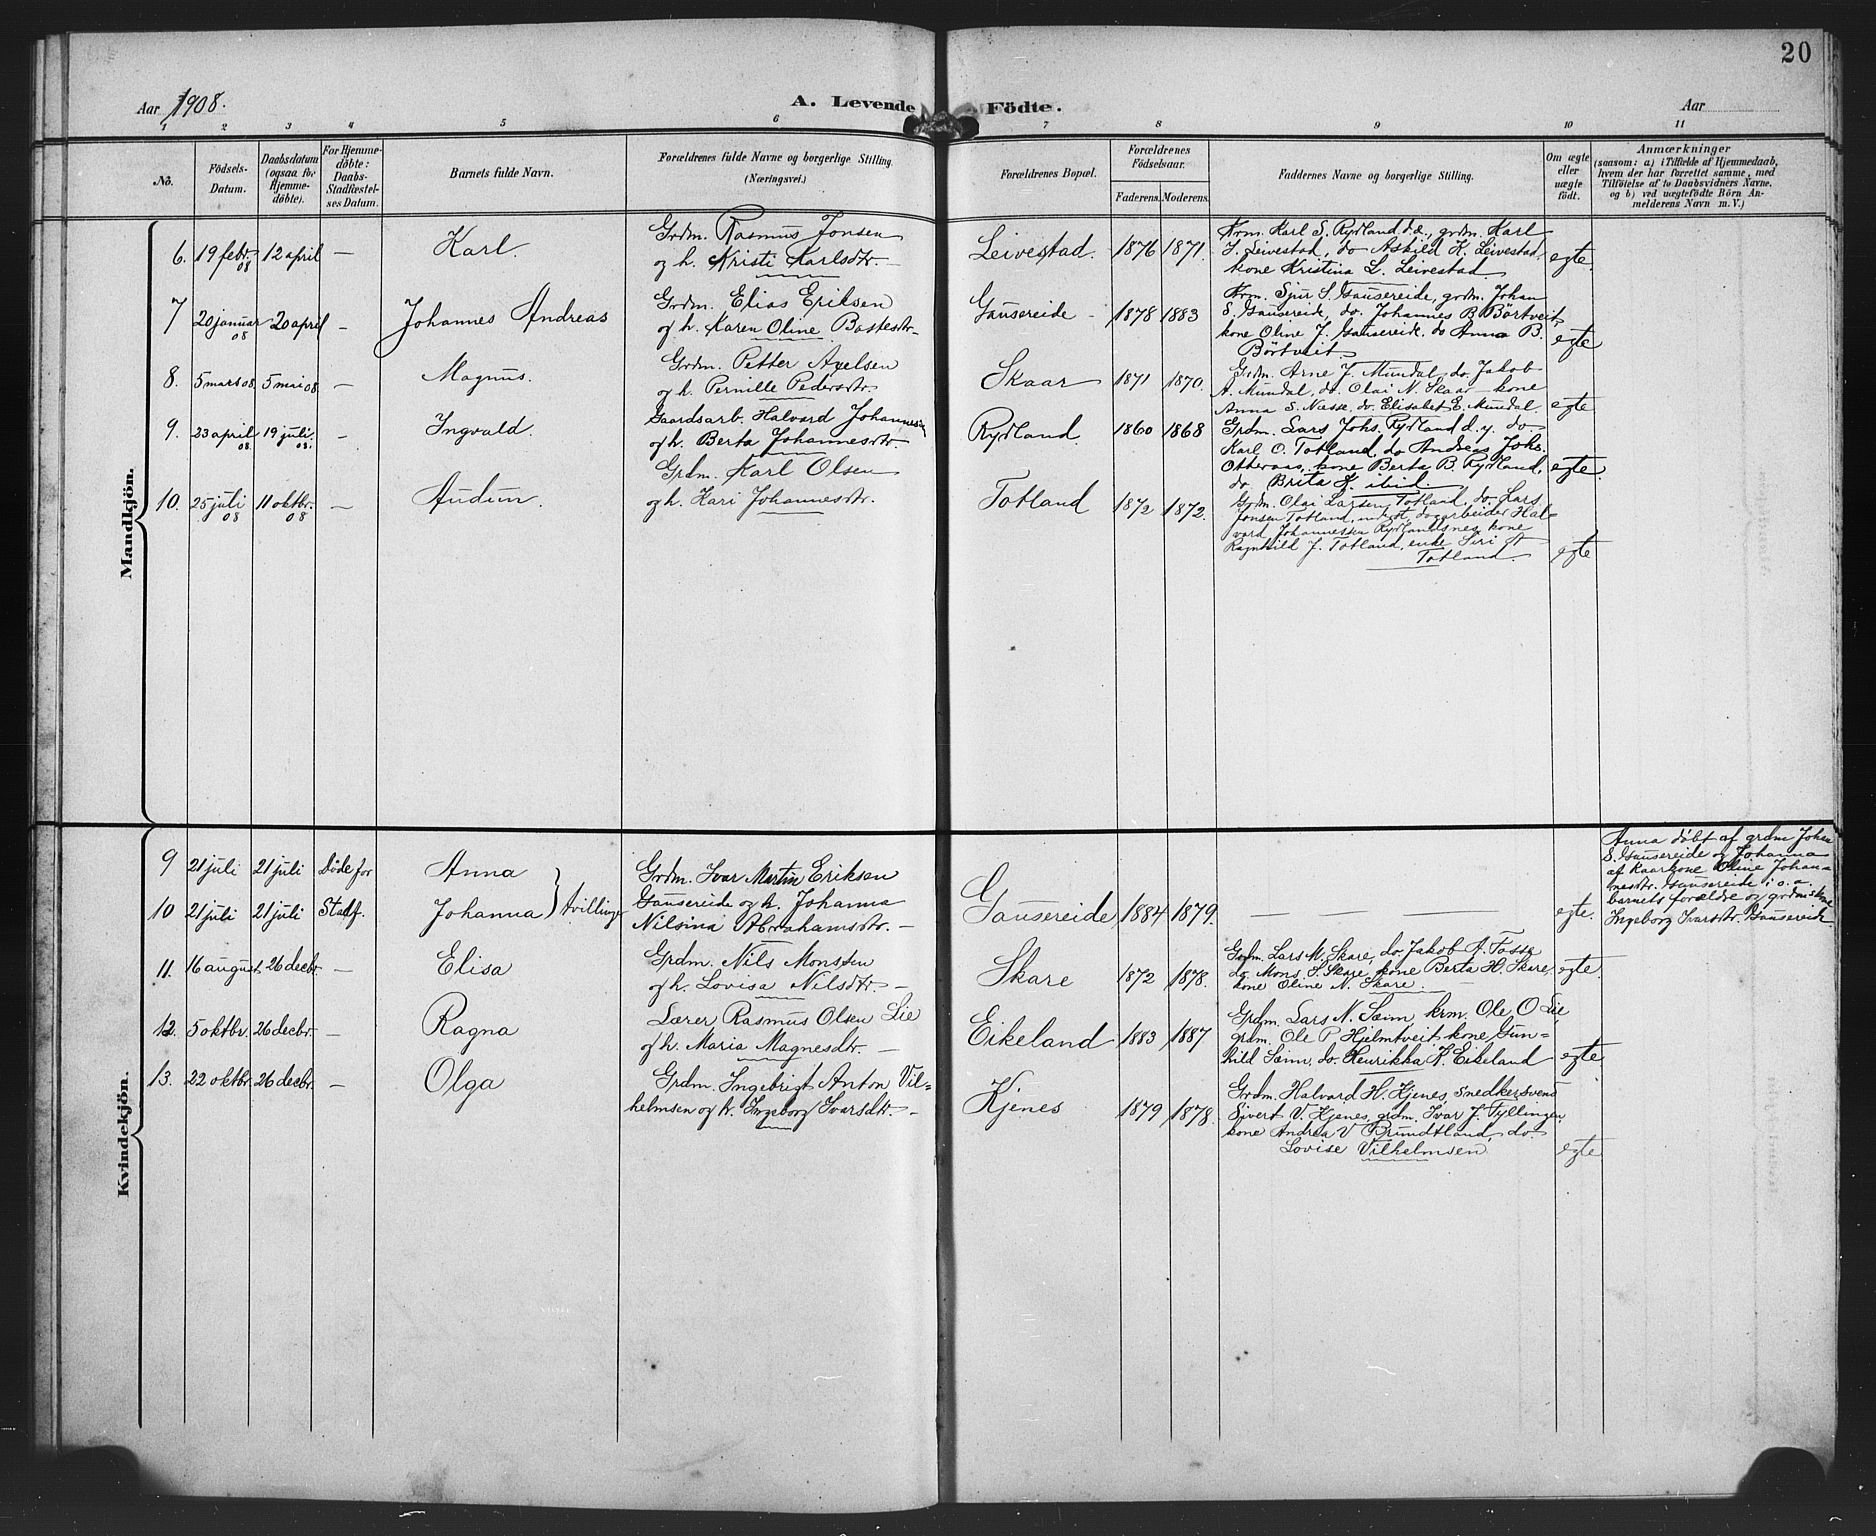 20
Aar 1908.
A. Levende Födte.
Aar
1 2 3 4 5 6 7 8 9 10 11
No.
Födsels-
Datum.
Daabsdatum
(ogsaa for
Hjemme-
döbte).
For Hjemme-
döbte:
Daabs-
Stadfæstel-
ses Datum.
Barnets fulde Navn.
Forældrenes fulde Navne og borgerlige Stilling.
(Næringsvei.)
Forældrenes Bopæl.
Forældrenes
Födselsaar.
Faderens. Moderens.
Faddernes Navne og borgerlige Stilling.
Om ægte
eller
uægte
födt.
Anmærkninger
(saasom: a) i Tilfælde af Hjemmedaab,
hvem der har forrettet samme, med
Tilföielse af to Daabsvidners Navne.
og b) ved uægtefödte Börn An-
melderens Navn m. V.)
Mandkjön.
6. 19 febr. 08 12 april — Karl.
Grdm. Rasmus Jonsen
og h. Kristi Karlsdtr. —
Leivestad. 1876 1871.
Krm. Karl S. Rydland d.æ., grdm. Karl
J. Leivestad, do Askild K. Leivestad,
kone Kristina L. Leivestad
egte.
7 20 januar 08 20 april — Johannes Andreas
Grdm. Elias Eriksen
og h. Karen Oline Bastesdtr. —
Gausereide — 1878 1883
Krm. Sjur S. Gausereide, grdm. Johan
S. Gausereide, do. Johannes B. Börtveit,
kone Oline J. Gausereide. do Anna B.
Börtveit.
egte
8. 5 mars 08. 5 mai 08. — Magnus.
Grdm. Petter Axelsen
og h. Pernille Pedersdtr.
Skaar 1871 1870.
Grdm. Arne J. Mundal, do. Jakob
A. Mundal, do. Olai N. Skaar kone
Anna S. Næsse, do. Elisabet E. Mundal.
egte
9. 23 april 08. 19 juli. 08. — Ingvald.
Gaardsarb. Halvard Johannesen
og h. Berta Johannesdtr.
Rydland 1860 1868
Grdm. Lars Johs. Rydland d.y. do
Karl O. Totland, do Andreas Johs.
Otteraas, kone Berta B. Rydland,
do Brita K. ibid.
egte.
10. 25 juli 08 11 oktbr. 08 — Audun.
Grdm. Karl Olsen
og h. Kari Johannesdtr.
Totland 1872 1872.
Grdm. Olai Larsen Totland, do. Lars
Jonsen Totland, arbeider Hal-
vard Johannessen Rydlandsnes, kone
Ragnhild J. Totland, enke Siri
Totland.
egte
Kvindekjön.
9 21 juli 21 juli Døde før Anna
10 21 juli 21 juli Stadf. Johanna } tvillinger
Grdm. Ivar Martin Eriksen
Gausereide og h. Johanna
Nilsina Abrahamsdtr. —
Gausereide 1884 1879. — — — egte.
Anna döbt af grdm Johan
S. Gausereide og Johanna
af Kaarkone Oline Johan-
nesdtr. Gausereide i o. a.
barnets forældre og grdmskone
Ingeborg Ivarsdtr. Gausereide
11. 16 august. 26 decbr. — Elisa
Grdm. Nils Monsen
og h. Lovisa Nilsdtr. —
Skare 1872 1878.
Grdm. Lars M. Skare, do. Jakob A. Tosse
do Mons S. Skare, kone Berta H. Skare,
kone Oline N. Skare. —
egte.
12. 5 oktbr. 26 decbr. — Ragna
Lærer Rasmus Olsen Lie
og h. Maria Magnesdtr. —
Eikeland 1883 1887
Grdm. Lars N. Sæim krm. Ole O Lie,
grdm. Ole P Hjelmtveit kone Gun-
hild Sæim, do. Henrikka K. Eikeland
egte.
13. 22 oktbr. 26 decbr. — Olga
Grdm. Ingebrigt Anton Vil-
helmsen og h. Ingeborg Ivarsdtr. —
Kjenes 1879 1878.
Grdm. Halvard H. Kjenes, snedkersvend
Sivert V. Kjenes, grdm. Ivar J. Tyllingen,
kone Andrea V. Brundtland, do.
Lovise Vilhelmsen
egte.